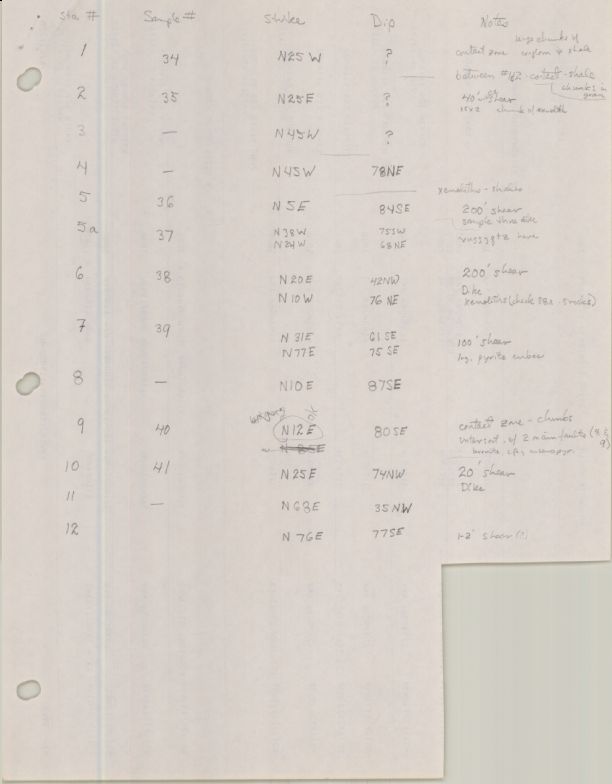 Sta # Sample # Strike Dip Notes
large chunks of
1 34 N25W ? contact zone conglom & shale
between #1&2 - contact - shale
chunks in
2 35 N25E ? 40' shear
chunk of xenolith
3 — N45W ?
4 — N45W 78NE
xenoliths - shales
5 36 N5E 84SE 200' shear
sample three dike
5a 37 N38W 75SW vuggy qtz here
N24W 68NE
6 38 N20E 42NW 200' shear
Dike
N10W 76NE xenoliths (check
7 39 N31E 61SE 100' shear
N77E 75SE lrg. pyrite cubes
8 — N10E 87SE
9 40 N12E 80SE contact zone - chunks
intersect. of 2 main faults
bornite, cpy,
10 41 N25E 74NW 20' shear
Dike
11 — N68E 35NW
12 N76E 77SE 1-2' shear (?)